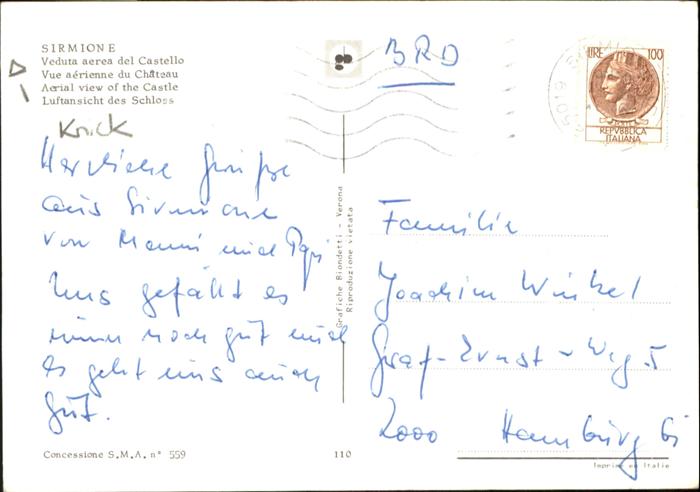 SIRMIONE
Veduta aerea del Castello
Vue aérienne du Château
Aerial view of the Castle
Luftansicht des Schloss
Knick
BRD
LIRE 100
REPVBBLICA
ITALIANA
Herzliche Grüße
aus Sirmione
von Mammi und Papi
Uns gefällt es
immer noch gut und
es geht uns auch
gut.
Grafiche Biondetti - Verona
Riproduzione vietata
Familie
Joachim Winkel
Graf-Ernst-Weg 5
2000 Hamburg
Concessione S.M.A. n° 559
110
Imprimé en Italie